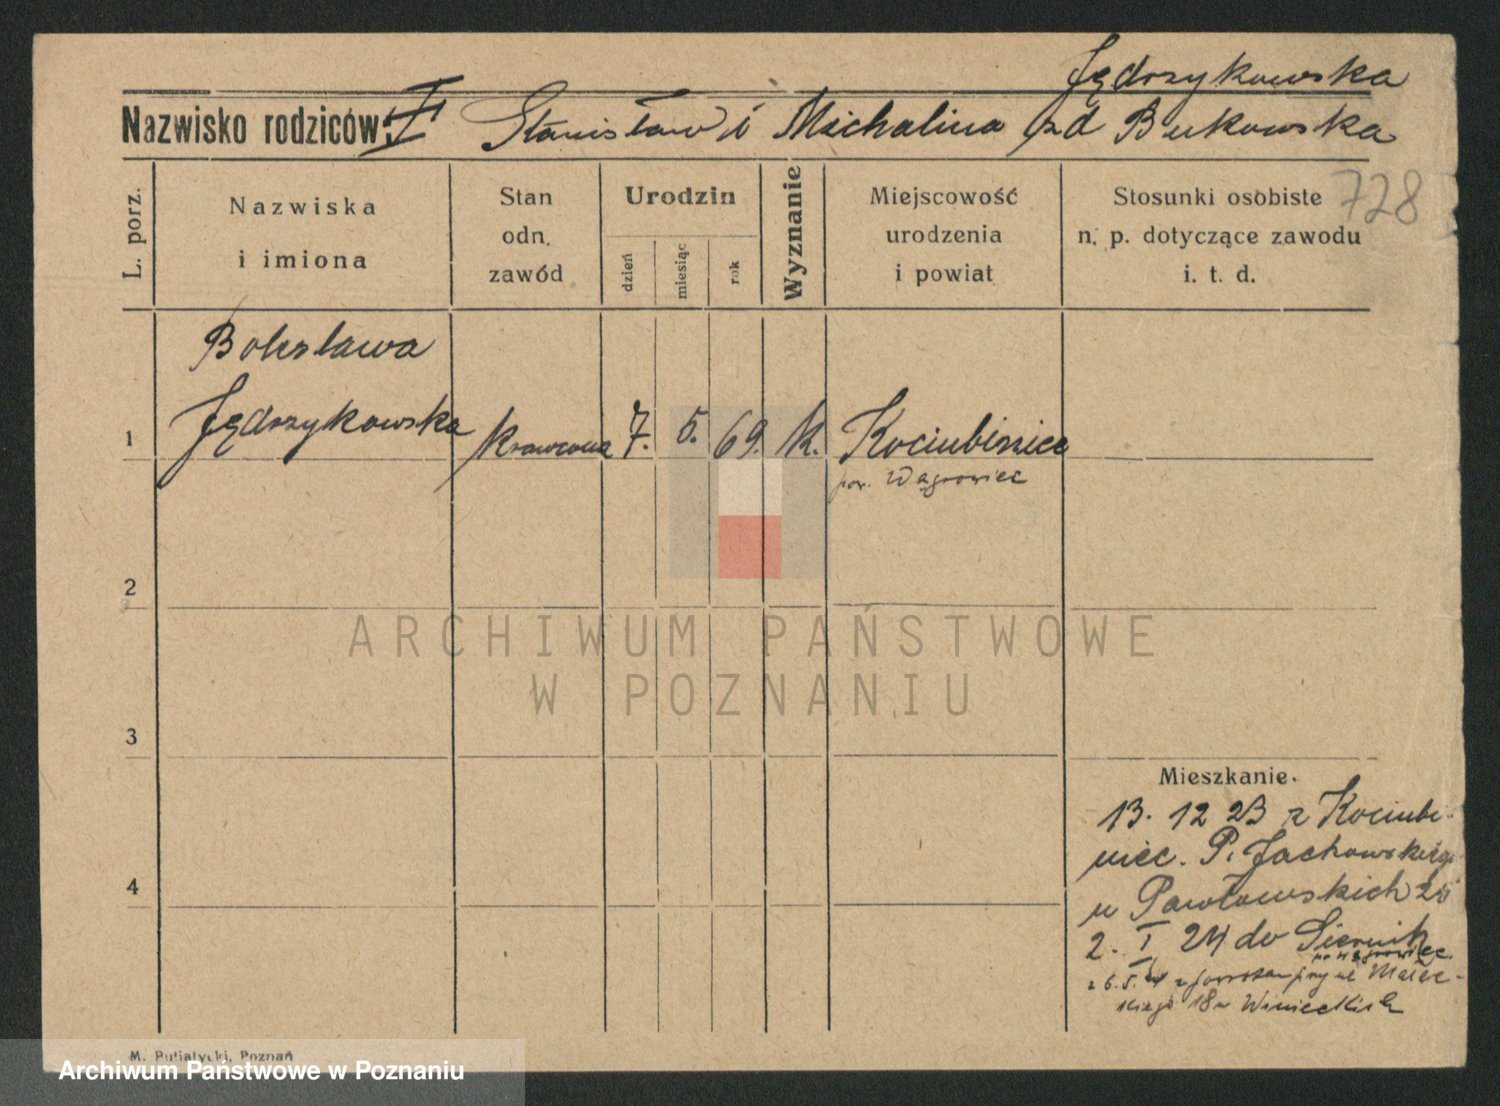 Jędrzykowska
Nazwisko rodziców: Stanisław i Michalina zd Bukowska
728
L. porz.
Nazwiska
i imiona
Stan
odn.
zawód
Urodzin
dzień
miesiąc
rok
Wyznanie
Miejscowość
urodzenia
i powiat
Stosunki osobiste
n. p. dotyczące zawodu
i. t. d.
Bolesława
1 Jędrzykowska krawcowa 7. 5. 69. k. Kociubiniec
pow. Wągrowiec
2
ARCHIWUM PAŃSTWOWE
W POZNANIU
3
Mieszkanie.
13. 12 23 z Kociubi-
niec. P. Jachowskiego
4
u Pawłowskich 25
2. I 24 do Siernik
Wągrowiec
z 6. 5. 24 z powrotem przy ul Malec-
kiego 18 u Winieckich
M. Putiatycki, Poznań
Archiwum Państwowe w Poznaniu